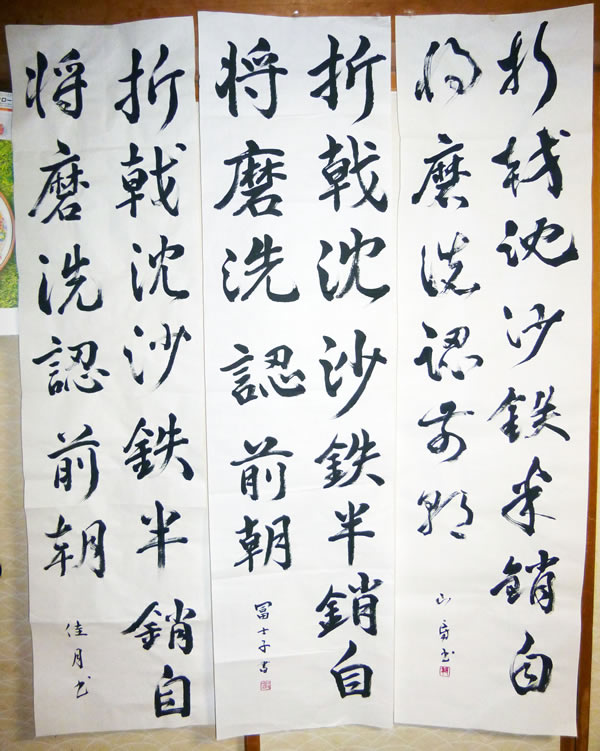 折戟沈沙鉄半銷自
将磨洗認前朝
山房書
折戟沈沙鉄半銷自
将磨洗認前朝
冨士子書
折戟沈沙鉄半銷自
将磨洗認前朝
佳月書